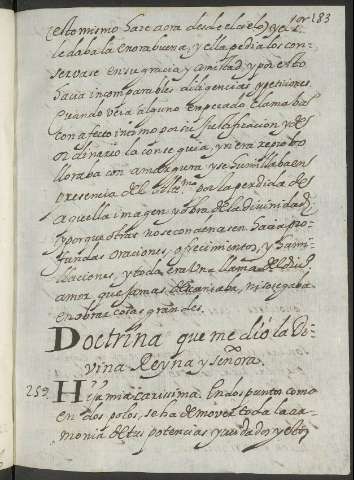 183
(esto mismo haze aora desde el cielo) y a
le daba la enorabuena, y ella pedia los con-
servase en su gracia y amistad, y por esto
hacia incomparables diligencias, y peticiones
Cuando veia alguno en pecado clamaba
con afecto intimo por su Justificacion, y de
ordinario la conseguia, y si era reprobo
lloraba con amargura y se humillaba en
presencia del por la perdida de
aquella imagen y obra de la divinidad,
y porque otras no se condenasen hacia pro-
fundas oraciones, ofrecimientos, y humi-
llaciones, y toda era Una llama del
amor que jamas descansaba, ni sosegaba
en obrar cosas grandes.
Doctrina que me dió la Di-
vina Reyna y señora.
259. Hija mia carissima. En dos puntos como
en dos polos, se ha de mover toda la ar-
monia de tus potencias, y cuidados y estos